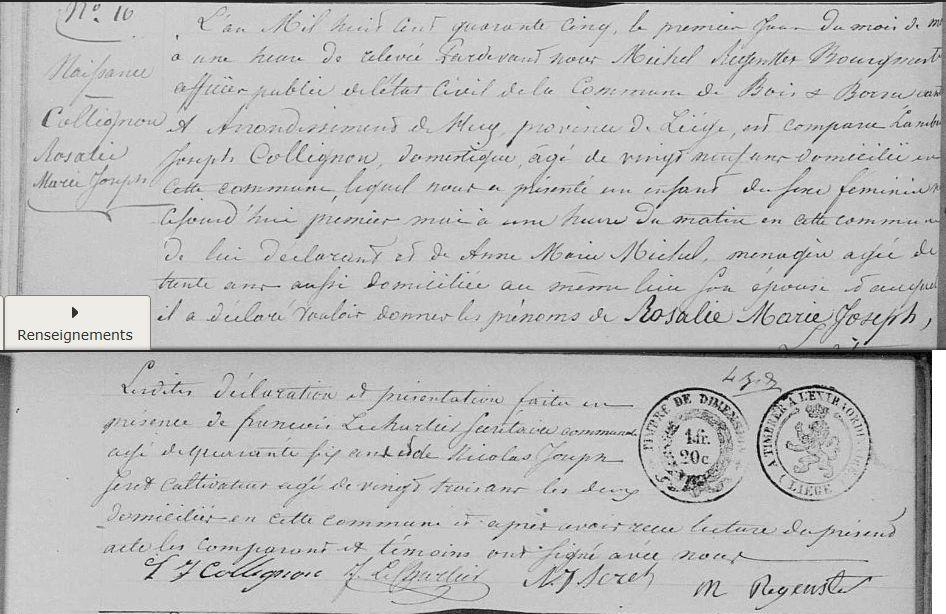 N° 16
Naissance
Collignon
Rosalie
Marie Joseph
L'an Mil huit cent quarante cinq, le premier jour du mois de
à une heure de relevée Pardevant nous Michel Regenster Bourgmestre
officier public de l'état Civil de la Commune de Bois & Borsu
et Arrondissement de Huy, province de Liége, est comparu Lambert
Joseph Collignon, domestique, âgé de vingt neuf ans domicilié en
cette commune lequel nous a présenté un enfant du sexe féminin
cejourd'hui premier mai à une heure du matin en cette commune
de lui déclarant et de Anne Marie Michel, menagère agée de
trente ans aussi domiciliée au même lieu son épouse et auquel
il a déclaré vouloir donner les prénoms de Rosalie Marie Joseph,
Renseignements
Lesdites déclaration et présentation faite en
présence de francois Lecharlier Secrétaire communal
agé de quarante six ans et de Nicolas Joseph
Seret cultivateur agé de vingt trois ans les deux
domiciliés en cette commune et après avoir reçu lecture du présent
acte les comparant et témoins ont signé avec nous
L J Collignon F Lecharlier N J Seret M Regenster
TIMBRE DE DIMENSION
1 fr.
20 c
A TIMBRER A L'EXTRAORDINAIRE
LIEGE